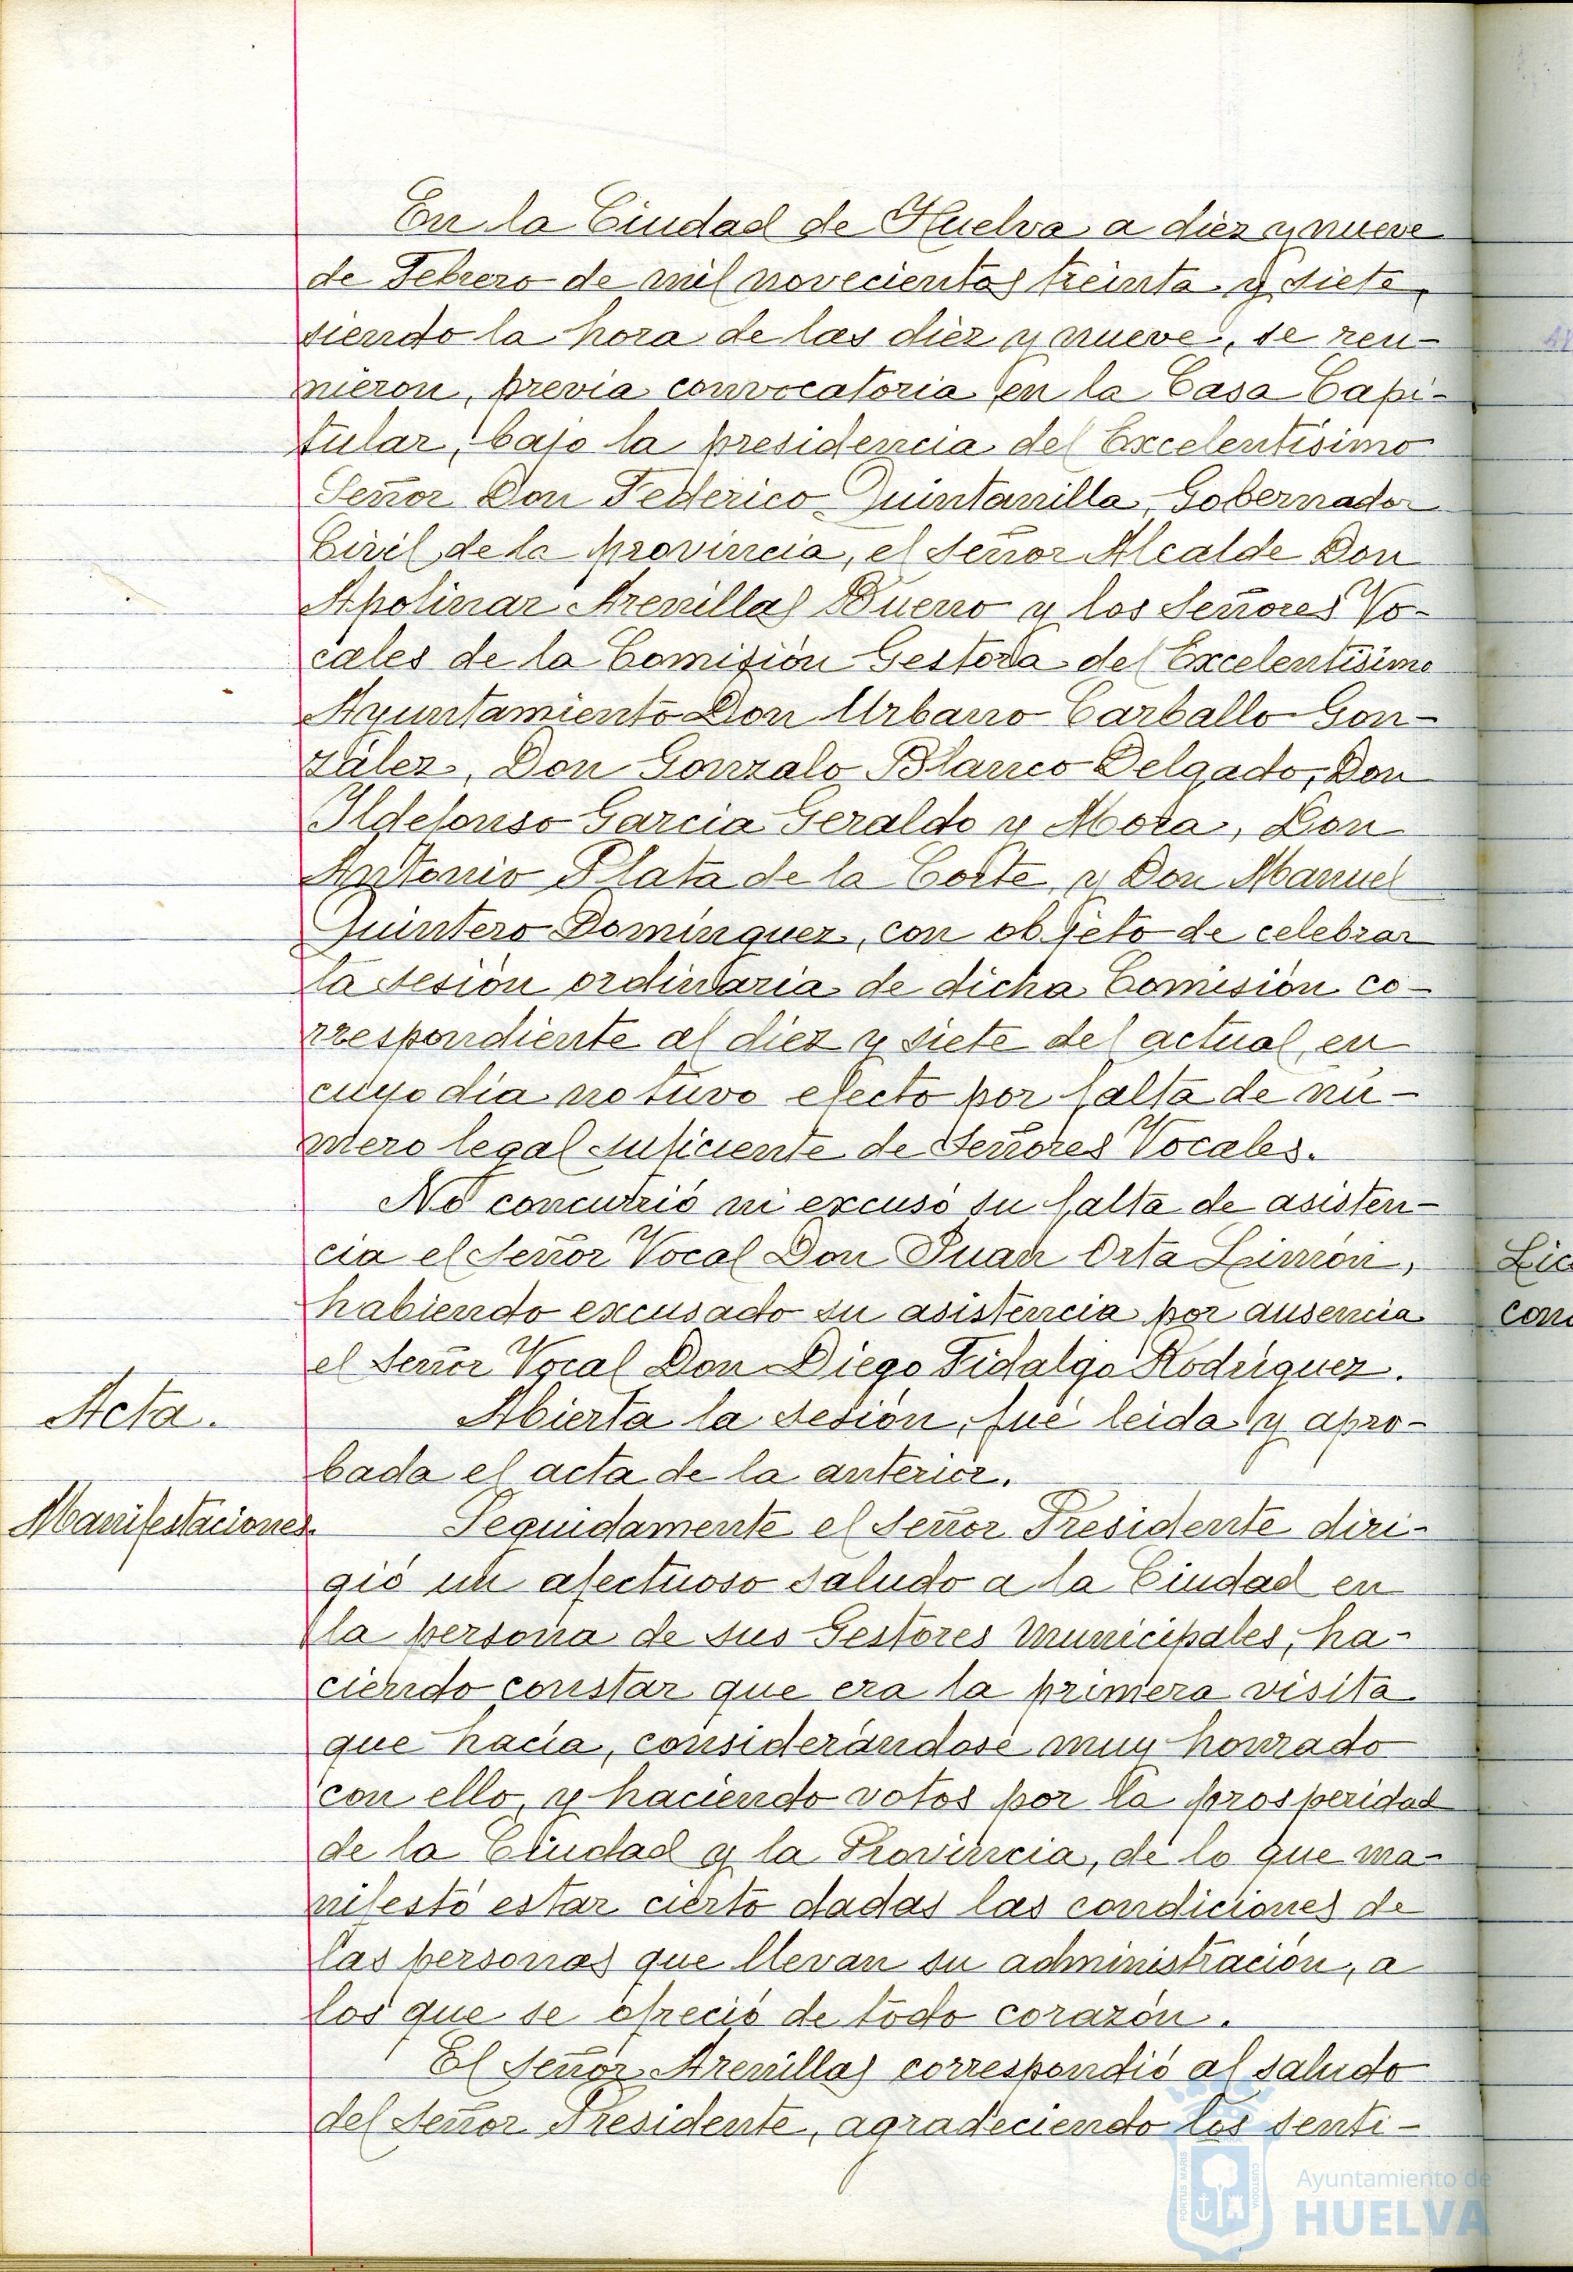 En la Ciudad de Huelva a diez y nueve
de Febrero de mil novecientos treinta y siete,
siendo la hora de las diez y nueve, se reu-
nieron, previa convocatoria en la Casa Capi-
tular, bajo la presidencia del Excelentísimo
Señor Don Federico Quintanilla, Gobernador
Civil de la provincia, el Señor Alcalde Don
Apolinar Arenillas Bueno y los Señores Vo-
cales de la Comisión Gestora del Excelentísimo
Ayuntamiento Don Urbano Carballo Gon-
zález, Don Gonzalo Blanco Delgado, Don
Ildefonso Garcia Geraldo y Mora, Don
Antonio Plata de la Corte y Don Manuel
Quintero Domínguez, con objeto de celebrar
la sesión ordinaria de dicha Comisión co-
rrespondiente al diez y siete del actual, en
cuyo día no tuvo efecto por falta de nú-
mero legal suficiente de Señores Vocales.
No concurrió ni excusó su falta de asisten-
cia el Señor Vocal Don Juan Orta Limón,
habiendo excusado su asistencia por ausencia
el Señor Vocal Don Diego Fidalgo Rodríguez.
Acta.
Abierta la sesión, fué leida y apro-
bada el acta de la anterior.
Manifestaciones.
Seguidamente el Señor Presidente diri-
gió un afectuoso saludo a la Ciudad en
la persona de sus Gestores Municipales, ha-
ciendo constar que era la primera visita
que hacía, considerándose muy honrado
con ello, y haciendo votos por la prosperidad
de la Ciudad y la Provincia, de lo que ma-
nifestó estar cierto dadas las condiciones de
las personas que llevan su administración, a
los que se ofreció de todo corazón.
El Señor Arenillas correspondió al saludo
del Señor Presidente, agradeciendo los senti-
Lic
con
PORTUS MARIS
CUSTODIA
Ayuntamiento de
HUELVA